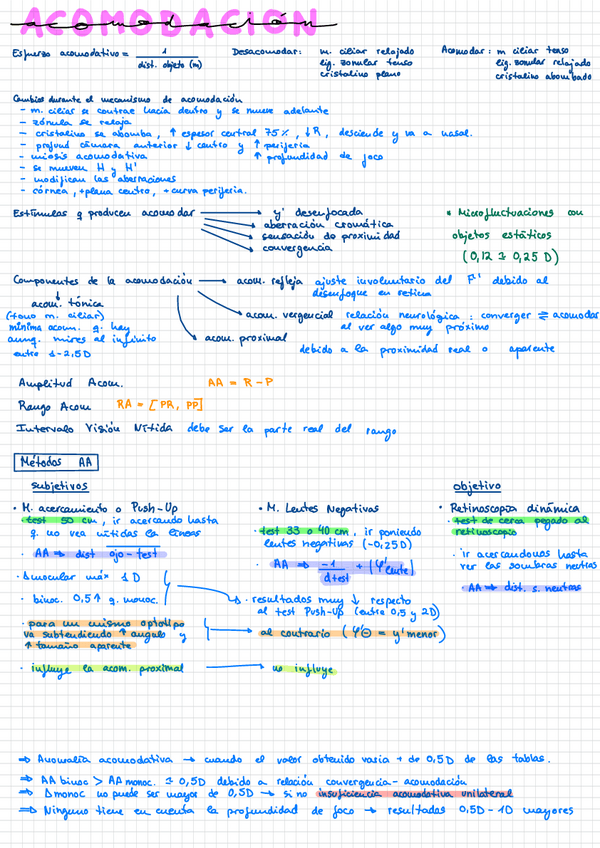 ACOMODACIÓN
acomodación
Esfuerzo acomodativo = 1 / dist. objeto (m)
Desacomodar: m. ciliar relajado
lig. zonular tenso
cristalino plano
Acomodar: m ciliar tenso
lig. zonular relajado
cristalino abombado
Cambios durante el mecanismo de acomodación
- m. ciliar se contrae hacia dentro y se mueve adelante
- zónula se relaja
- cristalino se abomba, ↑ espesor central 75%, ↓R, desciende y va a nasal.
- profund cámara anterior ↓ centro y ↑ periferia
- miosis acomodativa ↑ profundidad de foco
- se mueven H y H'
- modifican las aberraciones
- córnea, +plana centro, +curva periferia.
Estímulos q producen acomodar → y' desenfocada
aberración cromática
sensación de proximidad
convergencia
* Microfluctuaciones con
objetos estáticos
(0,12 ± 0,25 D)
Componentes de la acomodación → acom. refleja ajuste involuntario del F' debido al
desenfoque en retina
acom. tónica
(tono m. ciliar)
mínima acom. q. hay
aunq. mires al infinito
entre 1-2,5D
acom. vergencial relación neurológica: converger ⇌ acomodar
al ver algo muy próximo
acom. proximal debido a la proximidad real o aparente
Amplitud Acom. AA = R - P
Rango Acom RA = [PR, PP]
Intervalo Visión Nítida debe ser la parte real del rango
Métodos AA
subjetivos
• M. acercamiento o Push-Up
- test 50 cm, ir acercando hasta
q. no vea nítidas la líneas
- AA ⇒ dist ojo-test
- Δmocular máx 1D
- binoc. 0,5↑ q. monoc.
- para un mismo optotipo
va subtendiendo ↑ angulo y
↑ tamaño aparente
- influye la acom. proximal
• M. Lentes Negativas
- test 33 o 40 cm, ir poniendo
lentes negativas (-0,25D)
- AA ⇒ -1 / dtest + |φ'lente|
- resultados muy ↓ respecto
al test Push-Up (entre 0,5 y 2D)
al contrario (φ'⊖ = y' menor)
no influye
objetivo
• Retinoscopía dinámica
- test de cerca pegado al
retinoscopio
- ir acercandonos hasta
ver las sombras neutras
AA ⇒ dist. s. neutras
⇒ Anomalía acomodativa → cuando el valor obtenido varia + de 0,5D de las tablas.
⇒ AA binoc > AA monoc. ± 0,5D debido a relación convergencia-acomodación
⇒ Δmonoc no puede ser mayor de 0,5D → si no insuficiencia acomodativa unilateral
⇒ Ninguno tiene en cuenta la profundidad de foco → resultados 0,5D-1D mayores